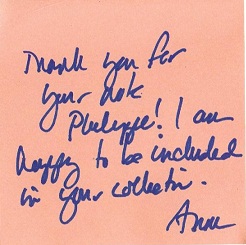 Thank you for
your note
Philippe! I am
happy to be included
in your collection.
Anne